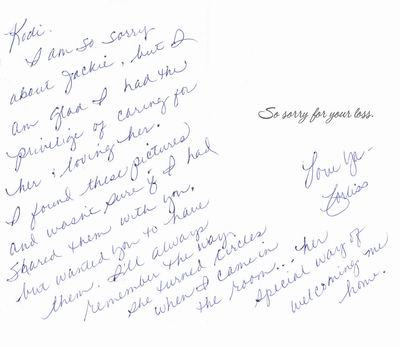 Kodi.
I am so sorry
about Jackie, but I
am glad I had the
privilige of caring for
her & loving her.
I found these pictures
and wasn't sure if I had
shared them with you,
but wanted you to have
them. I'll always
remember the way
she turned circles
when I came in
the room... her
special way of
welcoming me
home.
So sorry for your loss.
Love Ya-